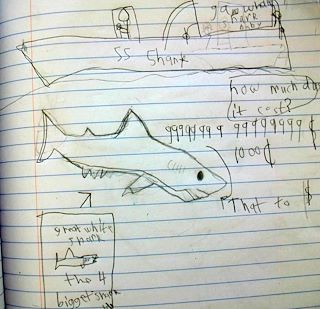 great white
shark
SS Shark
how much do
it cost?
9999999 99999999¢
1000¢
That to $
great white
shark
the 4
bigget shark